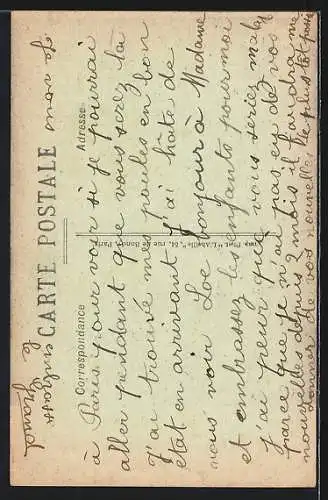 CARTE POSTALE
Correspondance
Adresse
Imp. Phot. "L'Abeille", 14, rue de Paris
à Paris pour voir si je pourrai
aller pendant que vous serez là
J'ai trouvé mes poules en bon
état en arrivant J'ai hâte de
vous voir Loe bonjour à Madame
et embrassez les enfants pour moi
J'ai peur que vous seriez malade
parce que je n'ai pas eu de vos
nouvelles depuis 2 mois il faudra me
donner de vos nouvelles le plus tôt possible
Je vous
embrasse
le
Grand